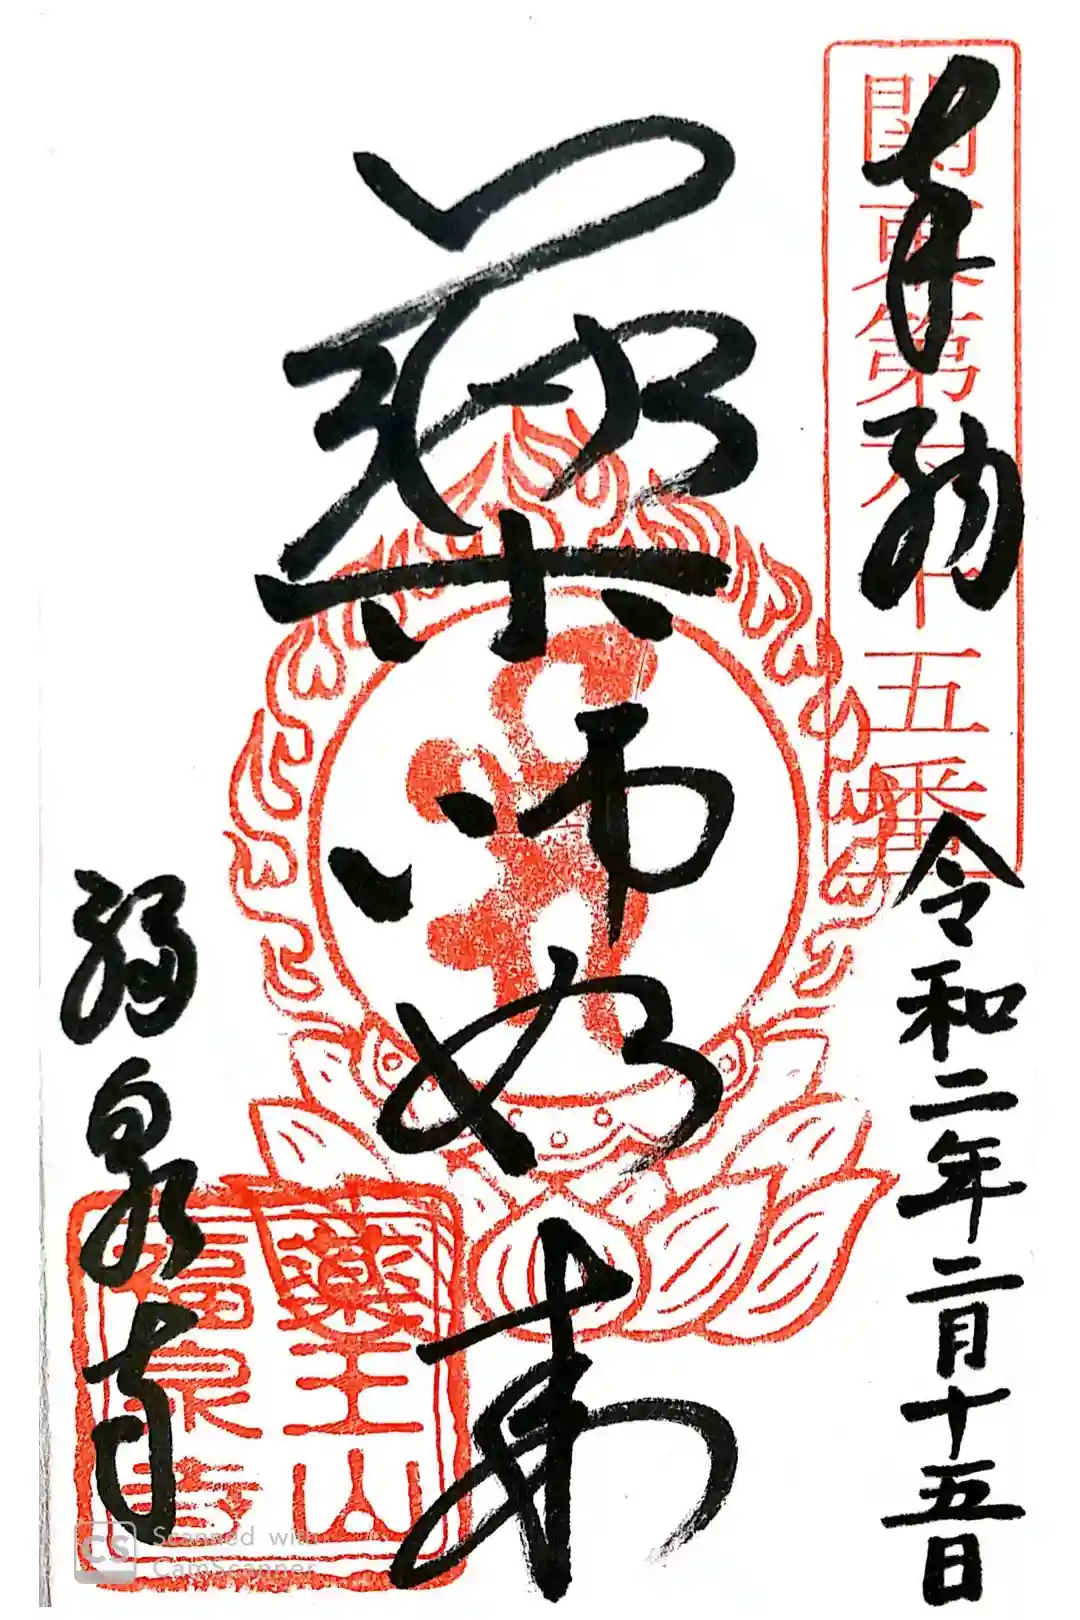 奉拝 令和二年二月十五日
関東第十五番
薬師如来
福泉寺
藥王山
福泉寺
CS Scanned with
CamScanner